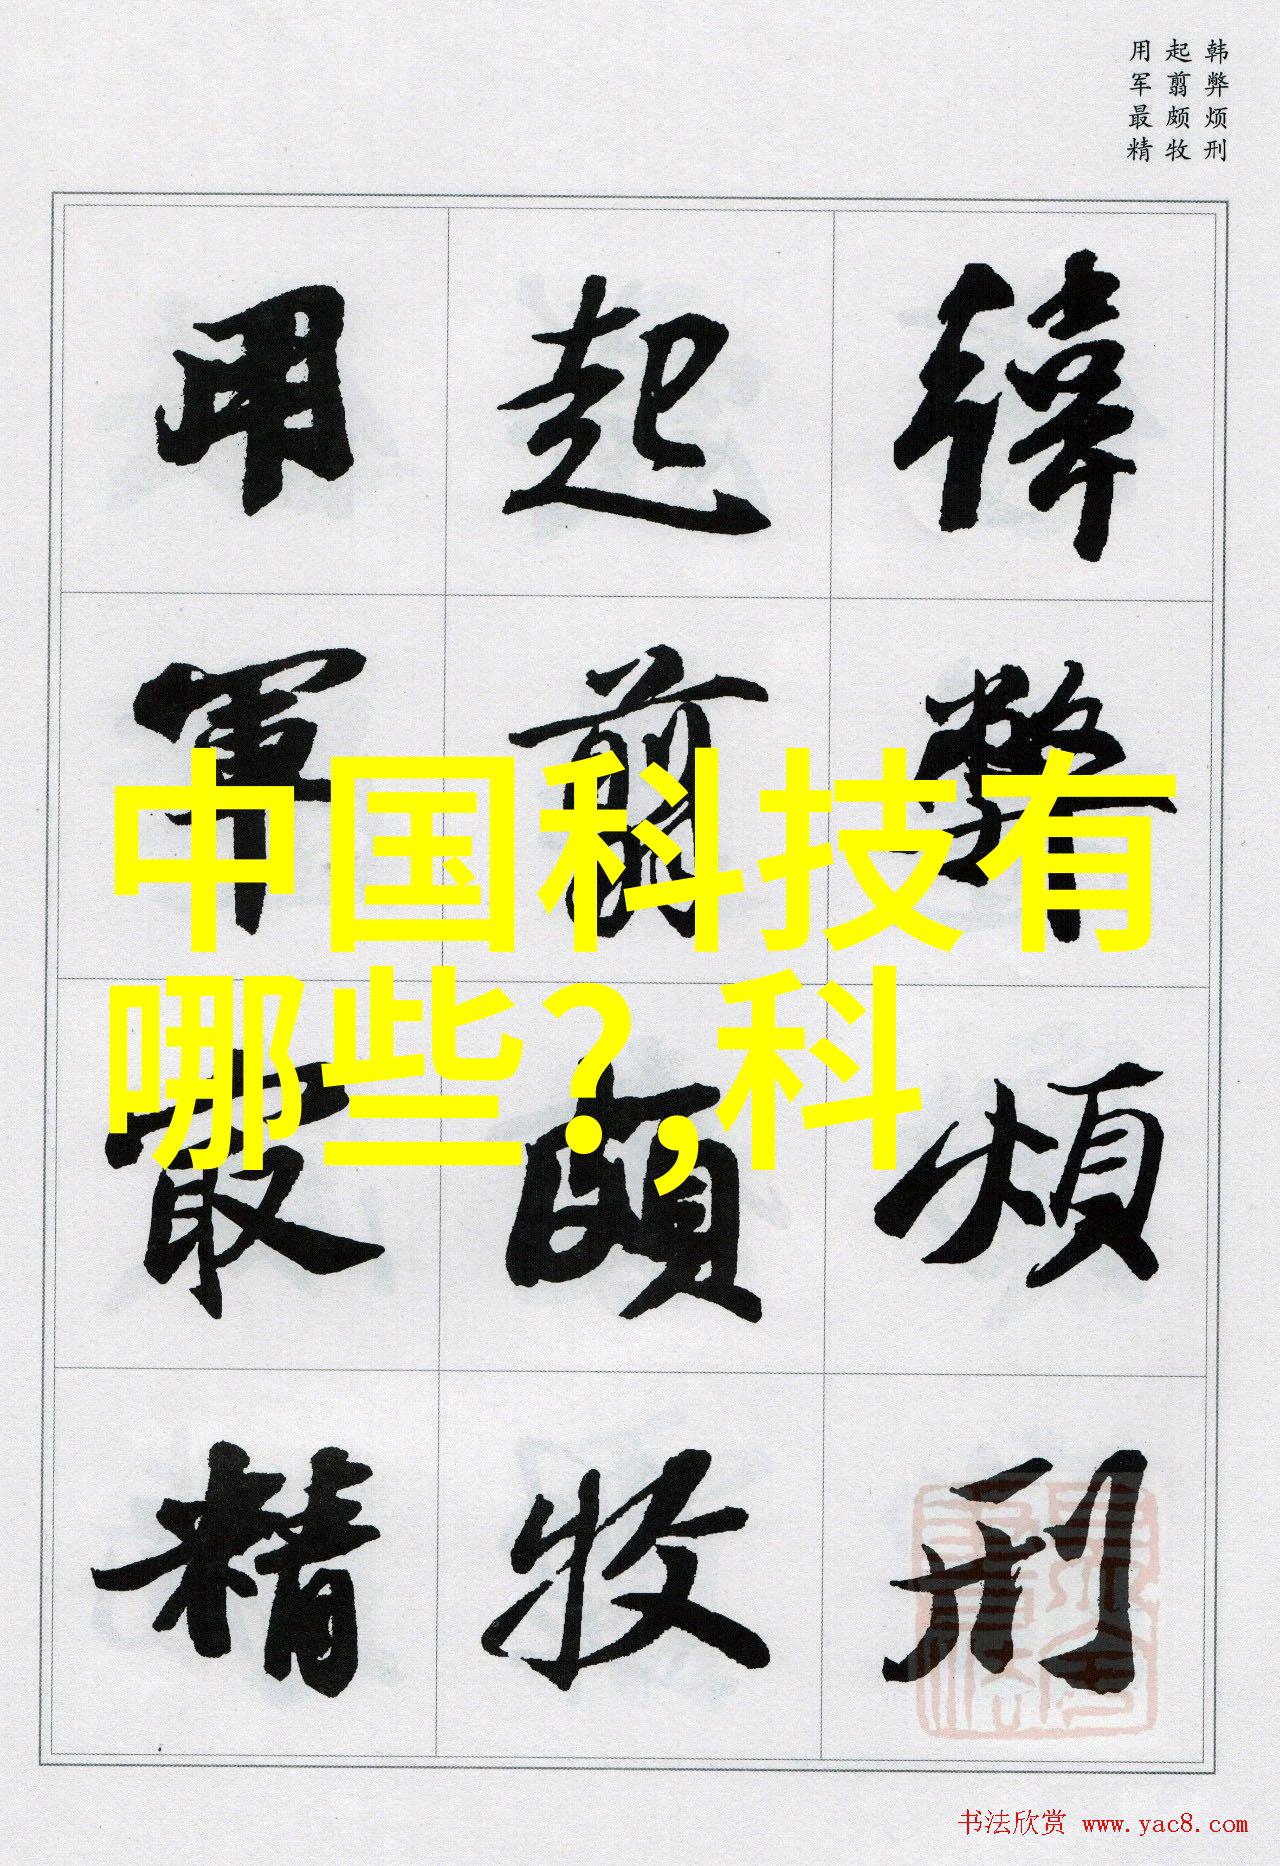 韩弊烦刑
起翦颇牧
用军最精
韓弊煩刑
起翦頗牧
用軍最精
中国科技有
哪些?,科
书法欣赏 www.yac8.com